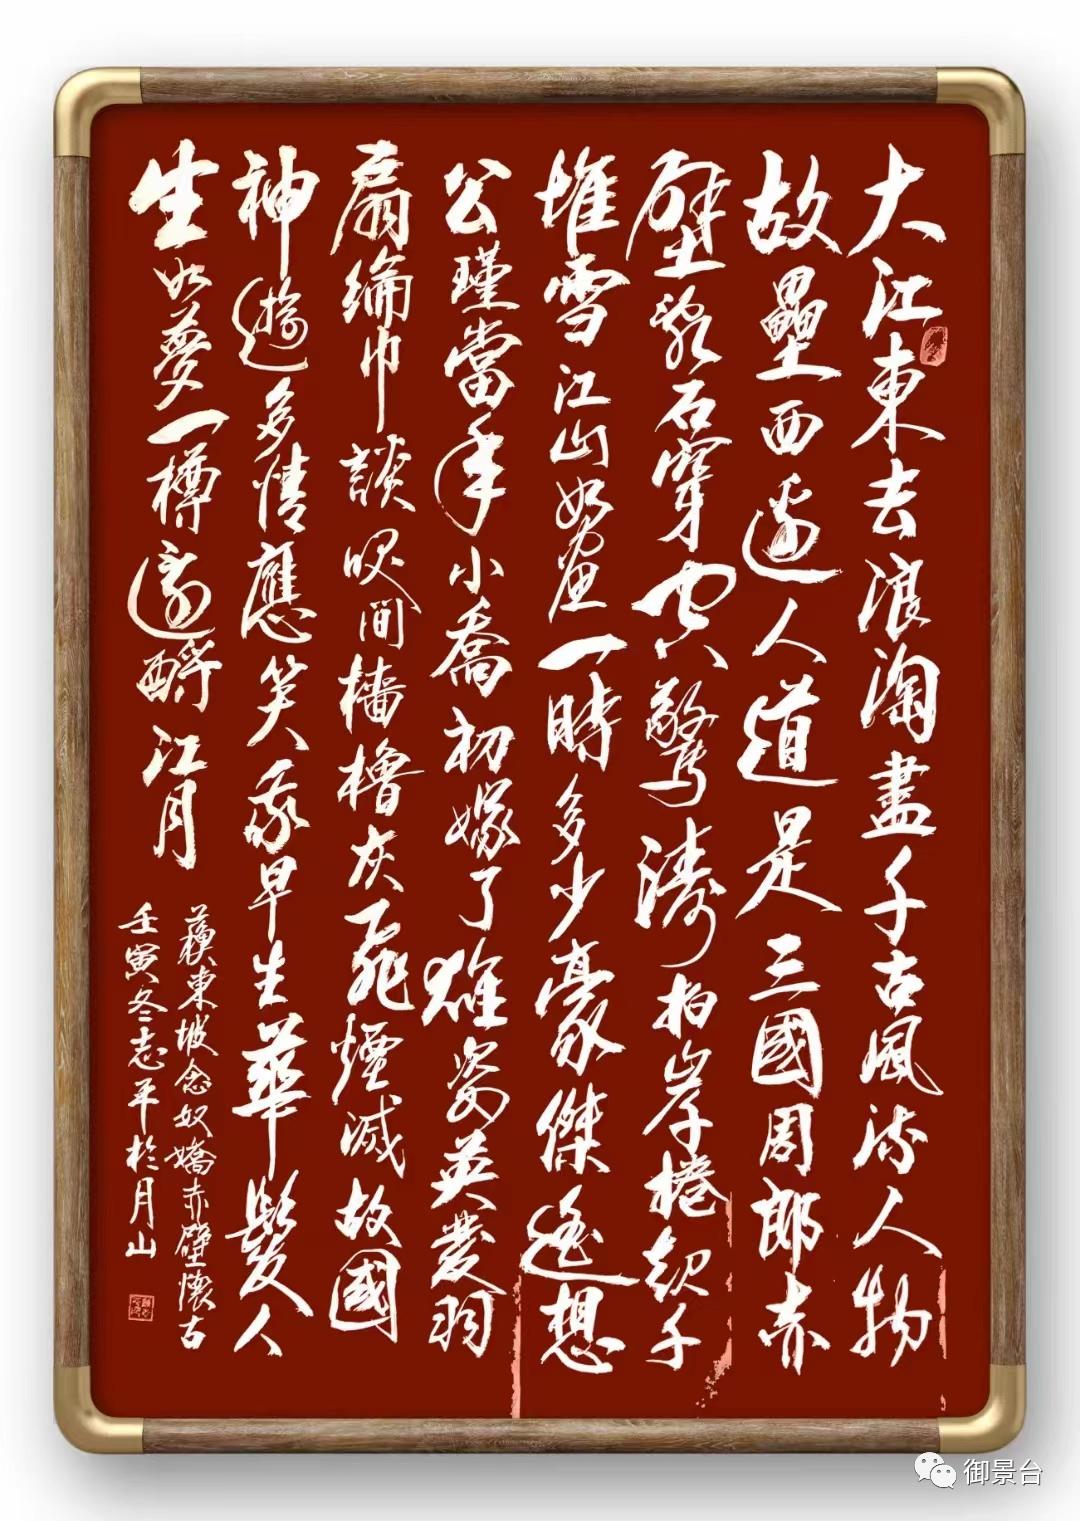 大江東去浪淘盡千古風流人物
故壘西邊人道是三國周郎赤
壁亂石穿空驚濤拍岸捲起千
堆雪江山如畫一時多少豪傑遙想
公瑾當年小喬初嫁了雄姿英發羽
扇綸巾談笑間檣櫓灰飛煙滅故國
神遊多情應笑我早生華髮人
生如夢一樽還酹江月
蘇東坡念奴嬌赤壁懷古
壬寅冬志平於月山
御景台